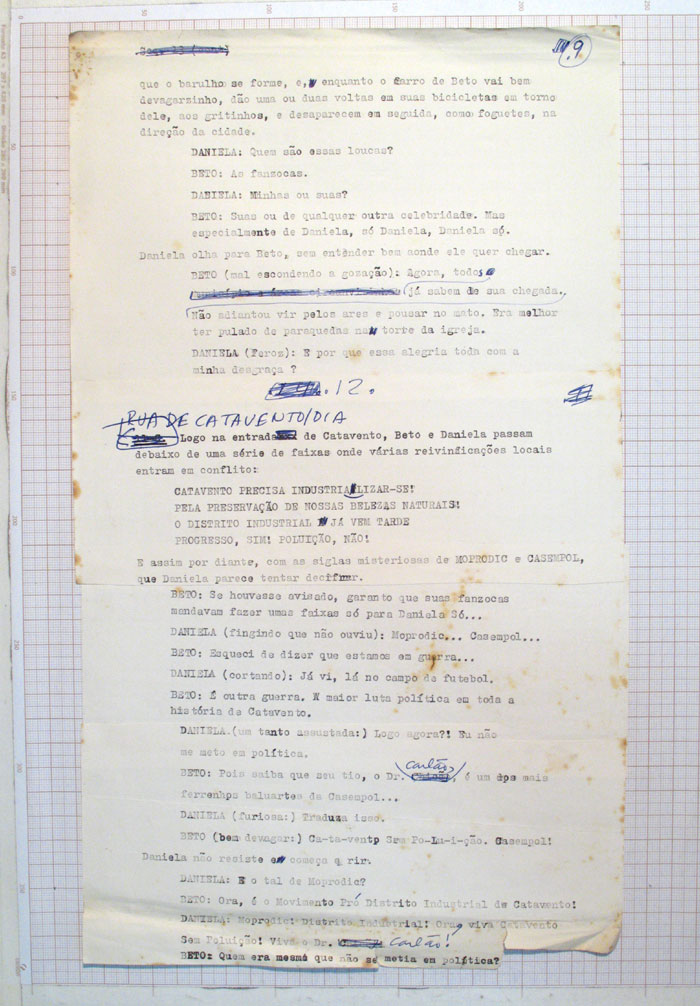 9
que o barulho se forme, e, enquanto o carro de Beto vai bem
devagarsinho, dão uma ou duas voltas em suas bicicletas em torno
dele, aos gritinhos, e desaparecem em seguida, como foguetes, na
direção da cidade.
DANIELA: Quem são essas loucas?
BETO: As fanzocas.
DANIELA: Minhas ou suas?
BETO: Suas ou de qualquer outra celebridade. Mas
especialmente de Daniela, só Daniela, Daniela só.
Daniela olha para Beto, sem entender bem aonde ele quer chegar.
BETO (mal escondendo a gozação): Agora, todos
já sabem de sua chegada.
Não adiantou vir pelos ares e pousar no mato. Era melhor
ter pulado de paraquedas na torre da igreja.
DANIELA (Feroz): E por que essa alegria toda com a
minha desgraça ?
.12.
RUA DE CATAVENTO/DIA
Logo na entrada de Catavento, Beto e Daniela passam
debaixo de uma série de faixas onde várias reivinficações locais
entram em conflito:
CATAVENTO PRECISA INDUSTRIALIZAR-SE!
PELA PRESERVAÇÃO DE NOSSAS BELEZAS NATURAIS!
O DISTRITO INDUSTRIAL JÁ VEM TARDE
PROGRESSO, SIM! POLUIÇÃO, NÃO!
E assim por diante, com as siglas misteriosas de MOPRODIC e CASEMPOL,
que Daniela parece tentar decifrar.
BETO: Se houvesse avisado, garanto que suas fanzocas
mandavam fazer umas faixas só para Daniela Só...
DANIELA (fingindo que não ouviu): Moprodic... Casempol...
BETO: Esqueci de dizer que estamos em guerra...
DANIELA (cortando): Já vi, lá no campo de futebol.
BETO: É outra guerra. A maior luta política em toda a
história de Catavento.
DANIELA.(um tanto assustada:) Logo agora?! Eu não
me meto em política.
BETO: Pois saiba que seu tio, o Dr. carlão, é um dos mais
ferrenhos baluartes da Casempol...
DANIELA (furiosa:) Traduza isso.
BETO (bem devagar:) Ca-ta-ventp Sem Po-Lu-i-ção. Casempol!
Daniela não resiste e começa a rir.
DANIELA: E o tal de Moprodic?
BETO: Ora, é o Movimento Pró Distrito Industrial de Catavento!
DANIELA: Moprodic! Distrito Industrial! Ora, viva Catavento
Sem Poluição! Viva o Dr. carlão!
BETO: Quem era mesmo que não se metia em política?